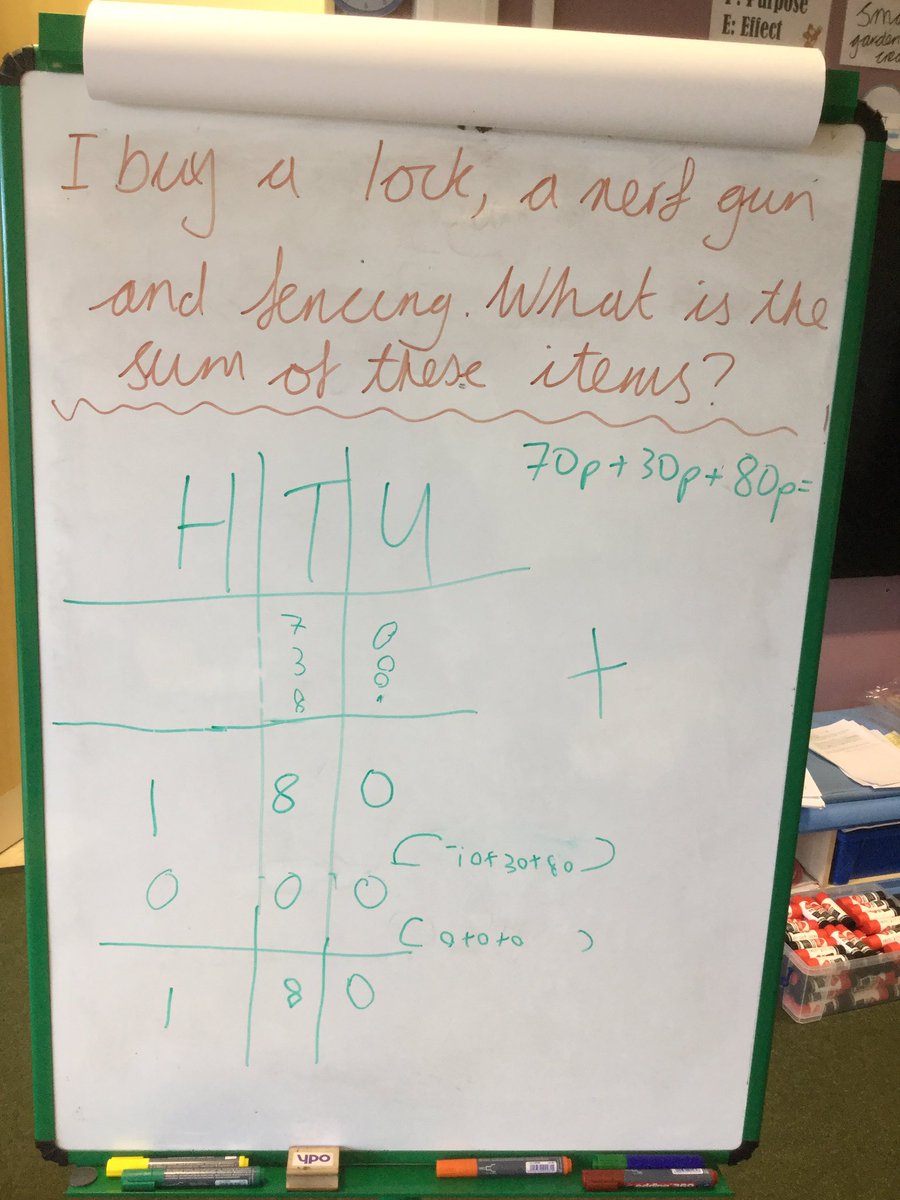 P: Purpose
E: Effect
I buy a lock, a nerf gun
and fencing. What is the
sum of these items?
70p+30p+80p=
H T U
7 0
3 0
8 0
+
1 8 0
(70+30+80)
0 0 0
(0+0+0)
1 8 0
ypo